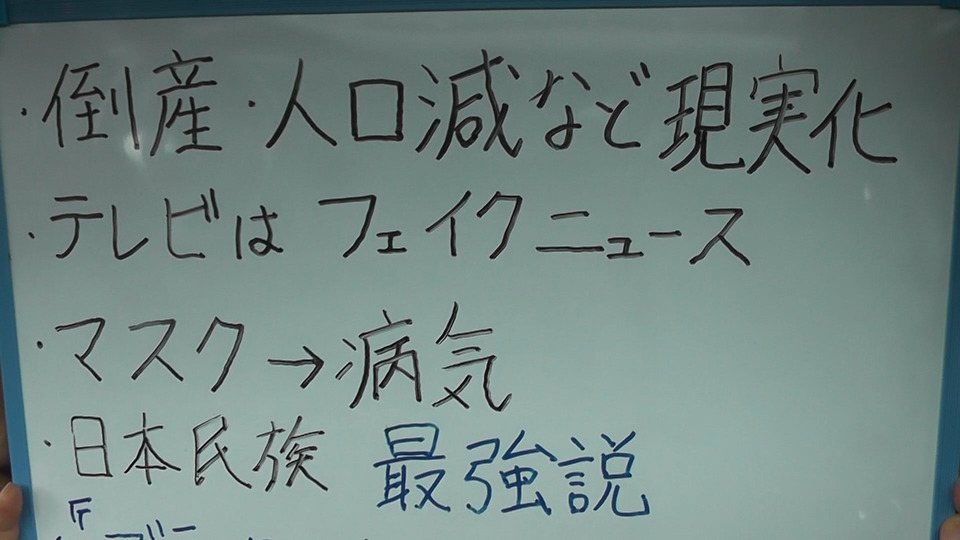 ・倒産・人口減など現実化
・テレビは フェイクニュース
・マスク→病気
・日本民族 最強説